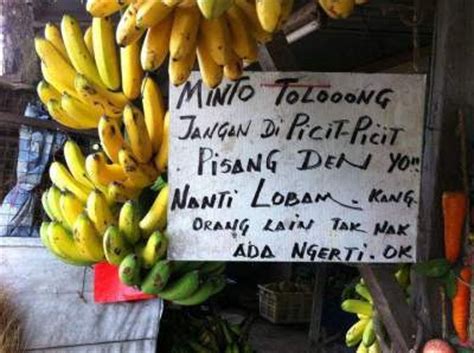 MINTO TOLOOONG
JANGAN DI PICIT-PICIT
PISANG DEN YO"
NANTI LOBAM. KANG.
ORANG LAIN TAK NAK
ADA NGERTI. OK